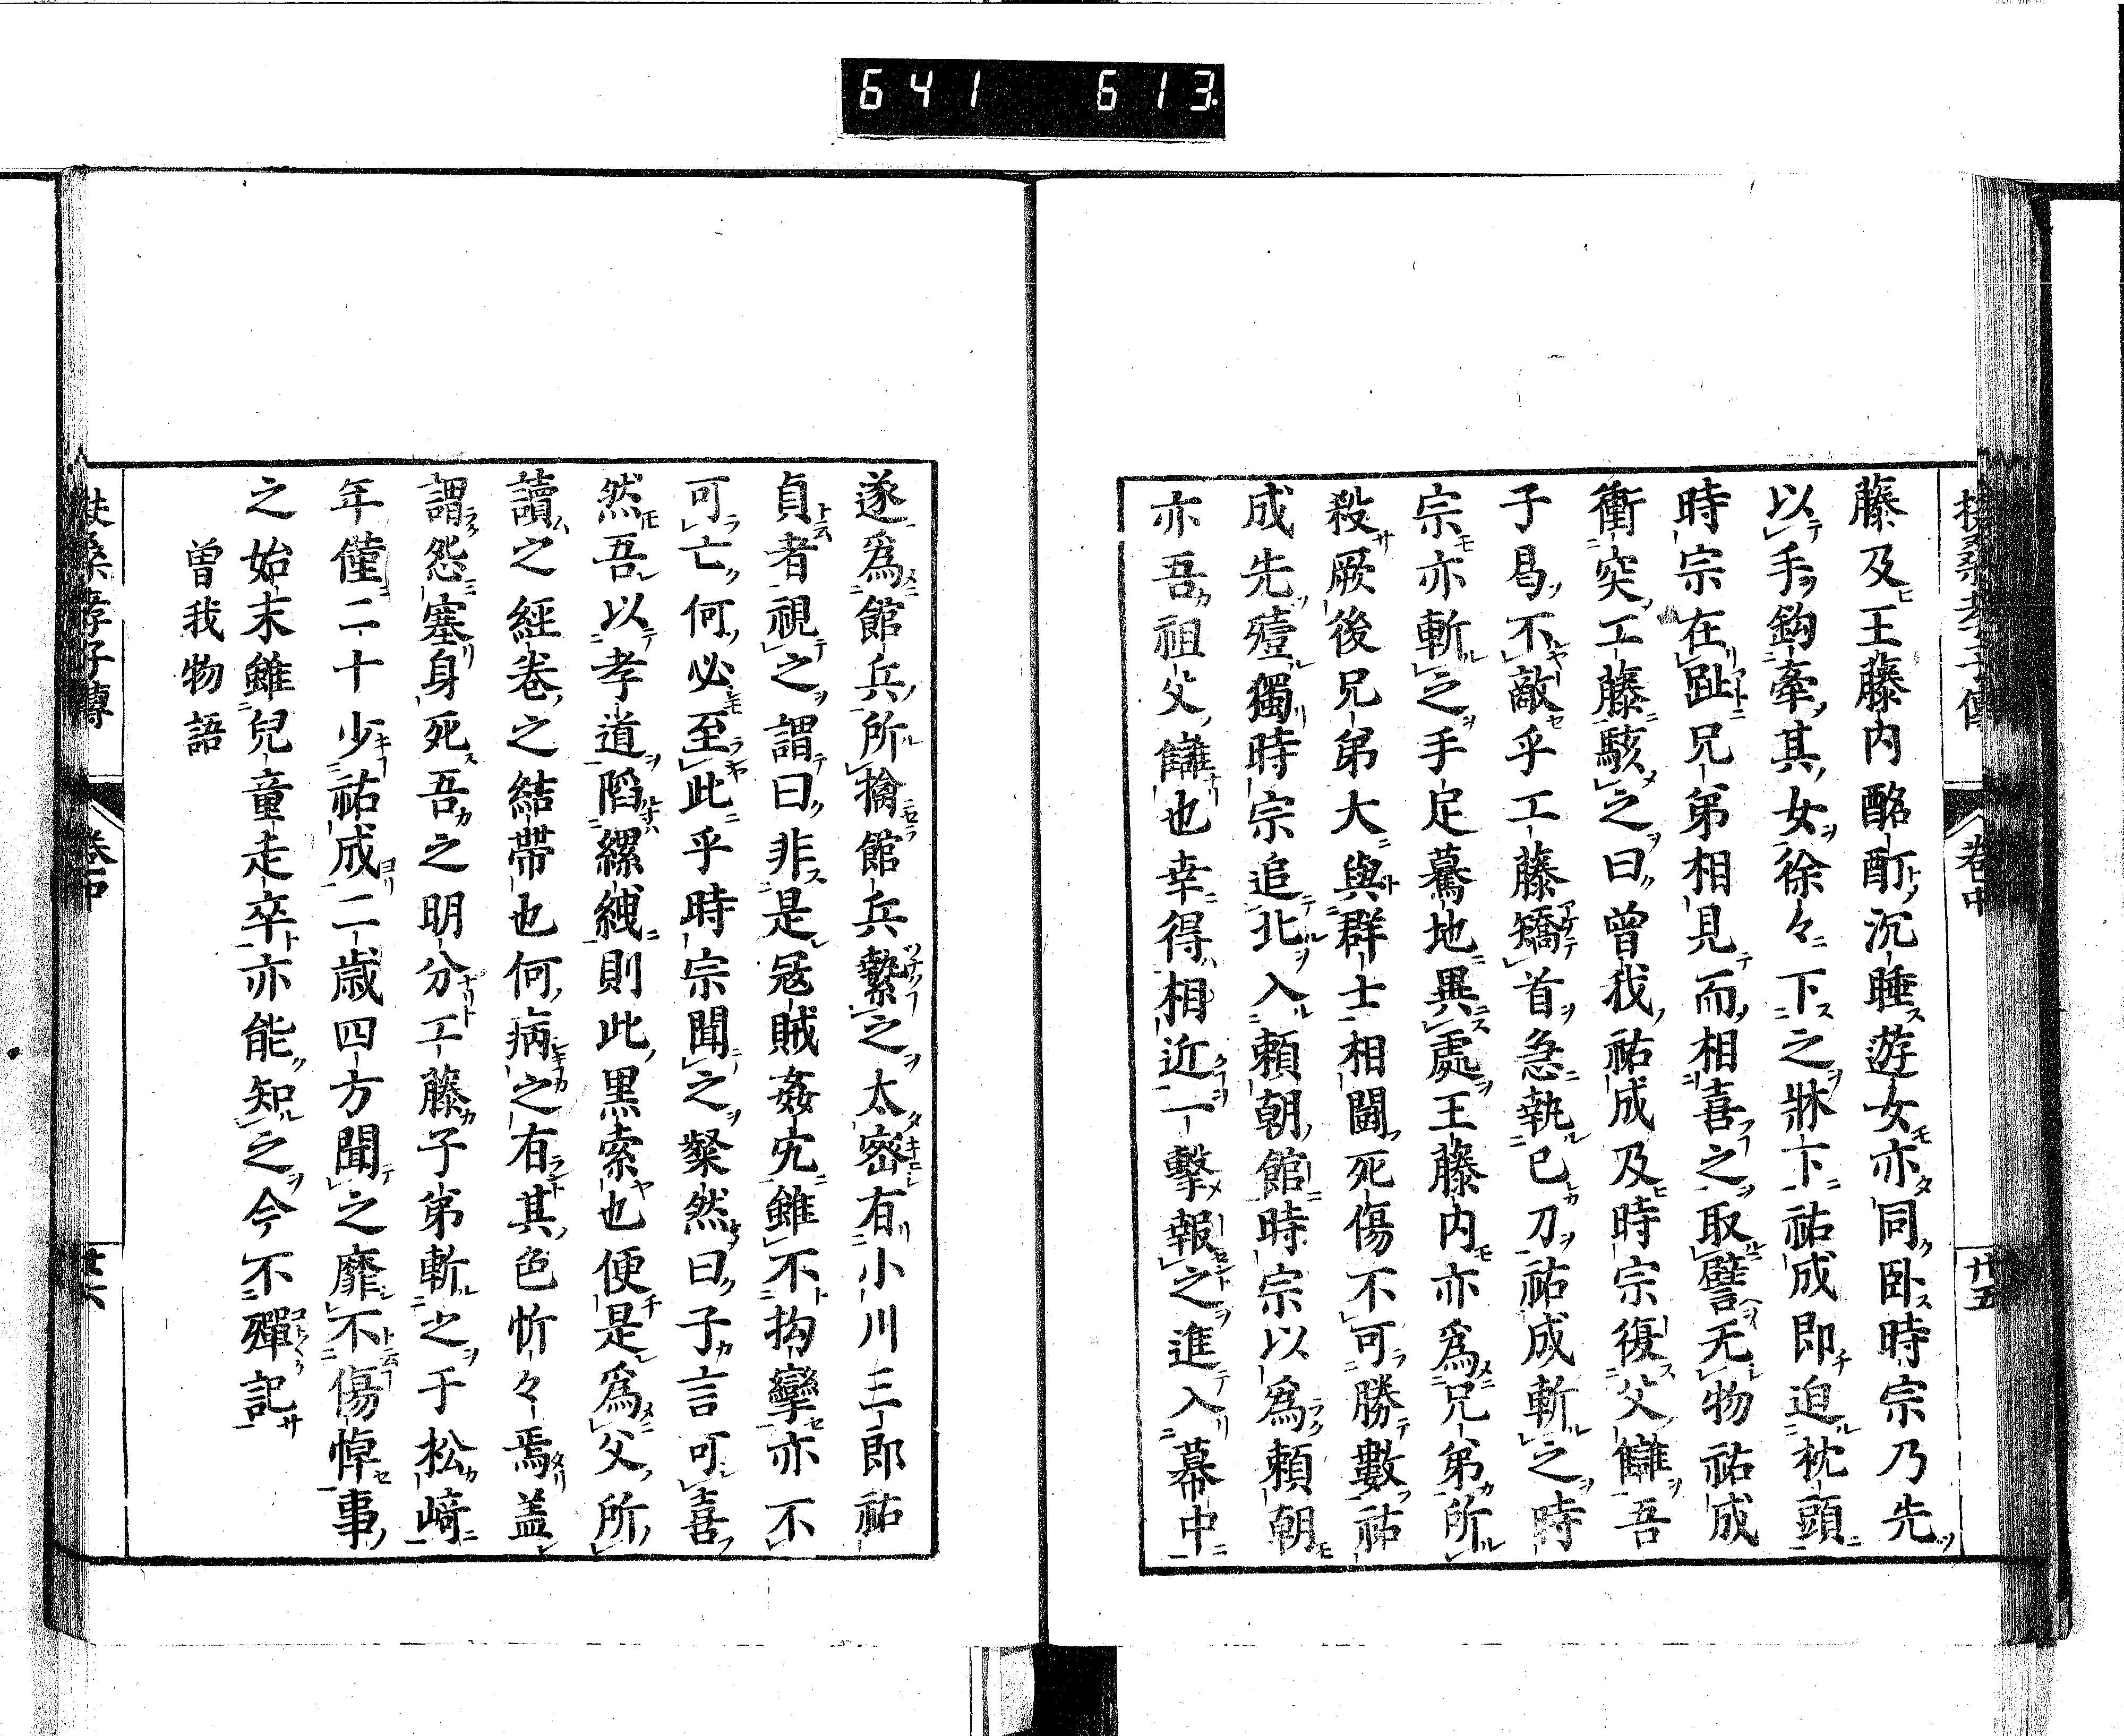 641 613
扶桑孝子傳 卷中 廿五
藤及王藤内酩酊沉睡遊女亦同臥時宗乃先
以手鈎牽其女徐々下之牀下祐成即迫枕頭
時宗在趾兄弟相見而相喜之取譬无物祐成
衝突工藤駭之曰曾我祐成及時宗復父讎吾
子曷不敵乎工藤矯首急執己刀祐成斬之時
宗亦斬之手足驀地異處王藤内亦爲兄弟所
殺厥後兄弟大與群士相鬪死傷不可勝數祐
成先殪獨時宗追北入賴朝館時宗以爲賴朝
亦吾祖父讎也幸得相近一擊報之進入幕中
遂爲館兵所擒館兵縶之太密有小川三郎祐
貞者視之謂曰非是冦賊姦宄雖不拘攣亦不
可亡何必至此乎時宗聞之粲然曰子言可喜
然吾以孝道陷縲絏則此黑索也便是爲父所
讀之經卷之結帶也何病之有其色忻々焉盖
謂怨塞身死吾之明分工藤子弟斬之于松﨑
年僅二十少祐成二歲四方聞之靡不傷悼事
之始末雖兒童走卒亦能知之今不殫記
曽我物語
扶桑孝子傳 卷中 廿六